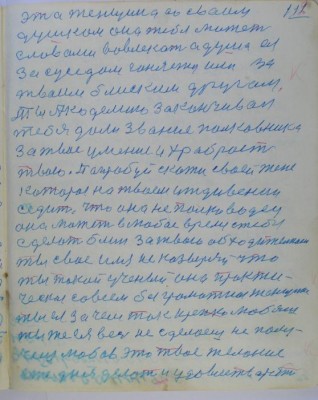 эта женщина со своим
душком она тебя может
словами вовлекат а душа ея
за суседом гоняется или за
твоим близким другам.
Ты Академию закончивал
тебя дали звание полковника
за твое умение и храброст
твою. Попробуй скажи своей жене
которая на твоем иждивении
седит, что она не полководец
она может в любое время с тебя
сделат
ты свое имя не козыряй что
ты такой ученый она практи-
чески совсем безграмотная женщина
ты ея зачем так крепко любиш
ты же ея вещ не сделаеш не полу-
чиш любов это твое желание